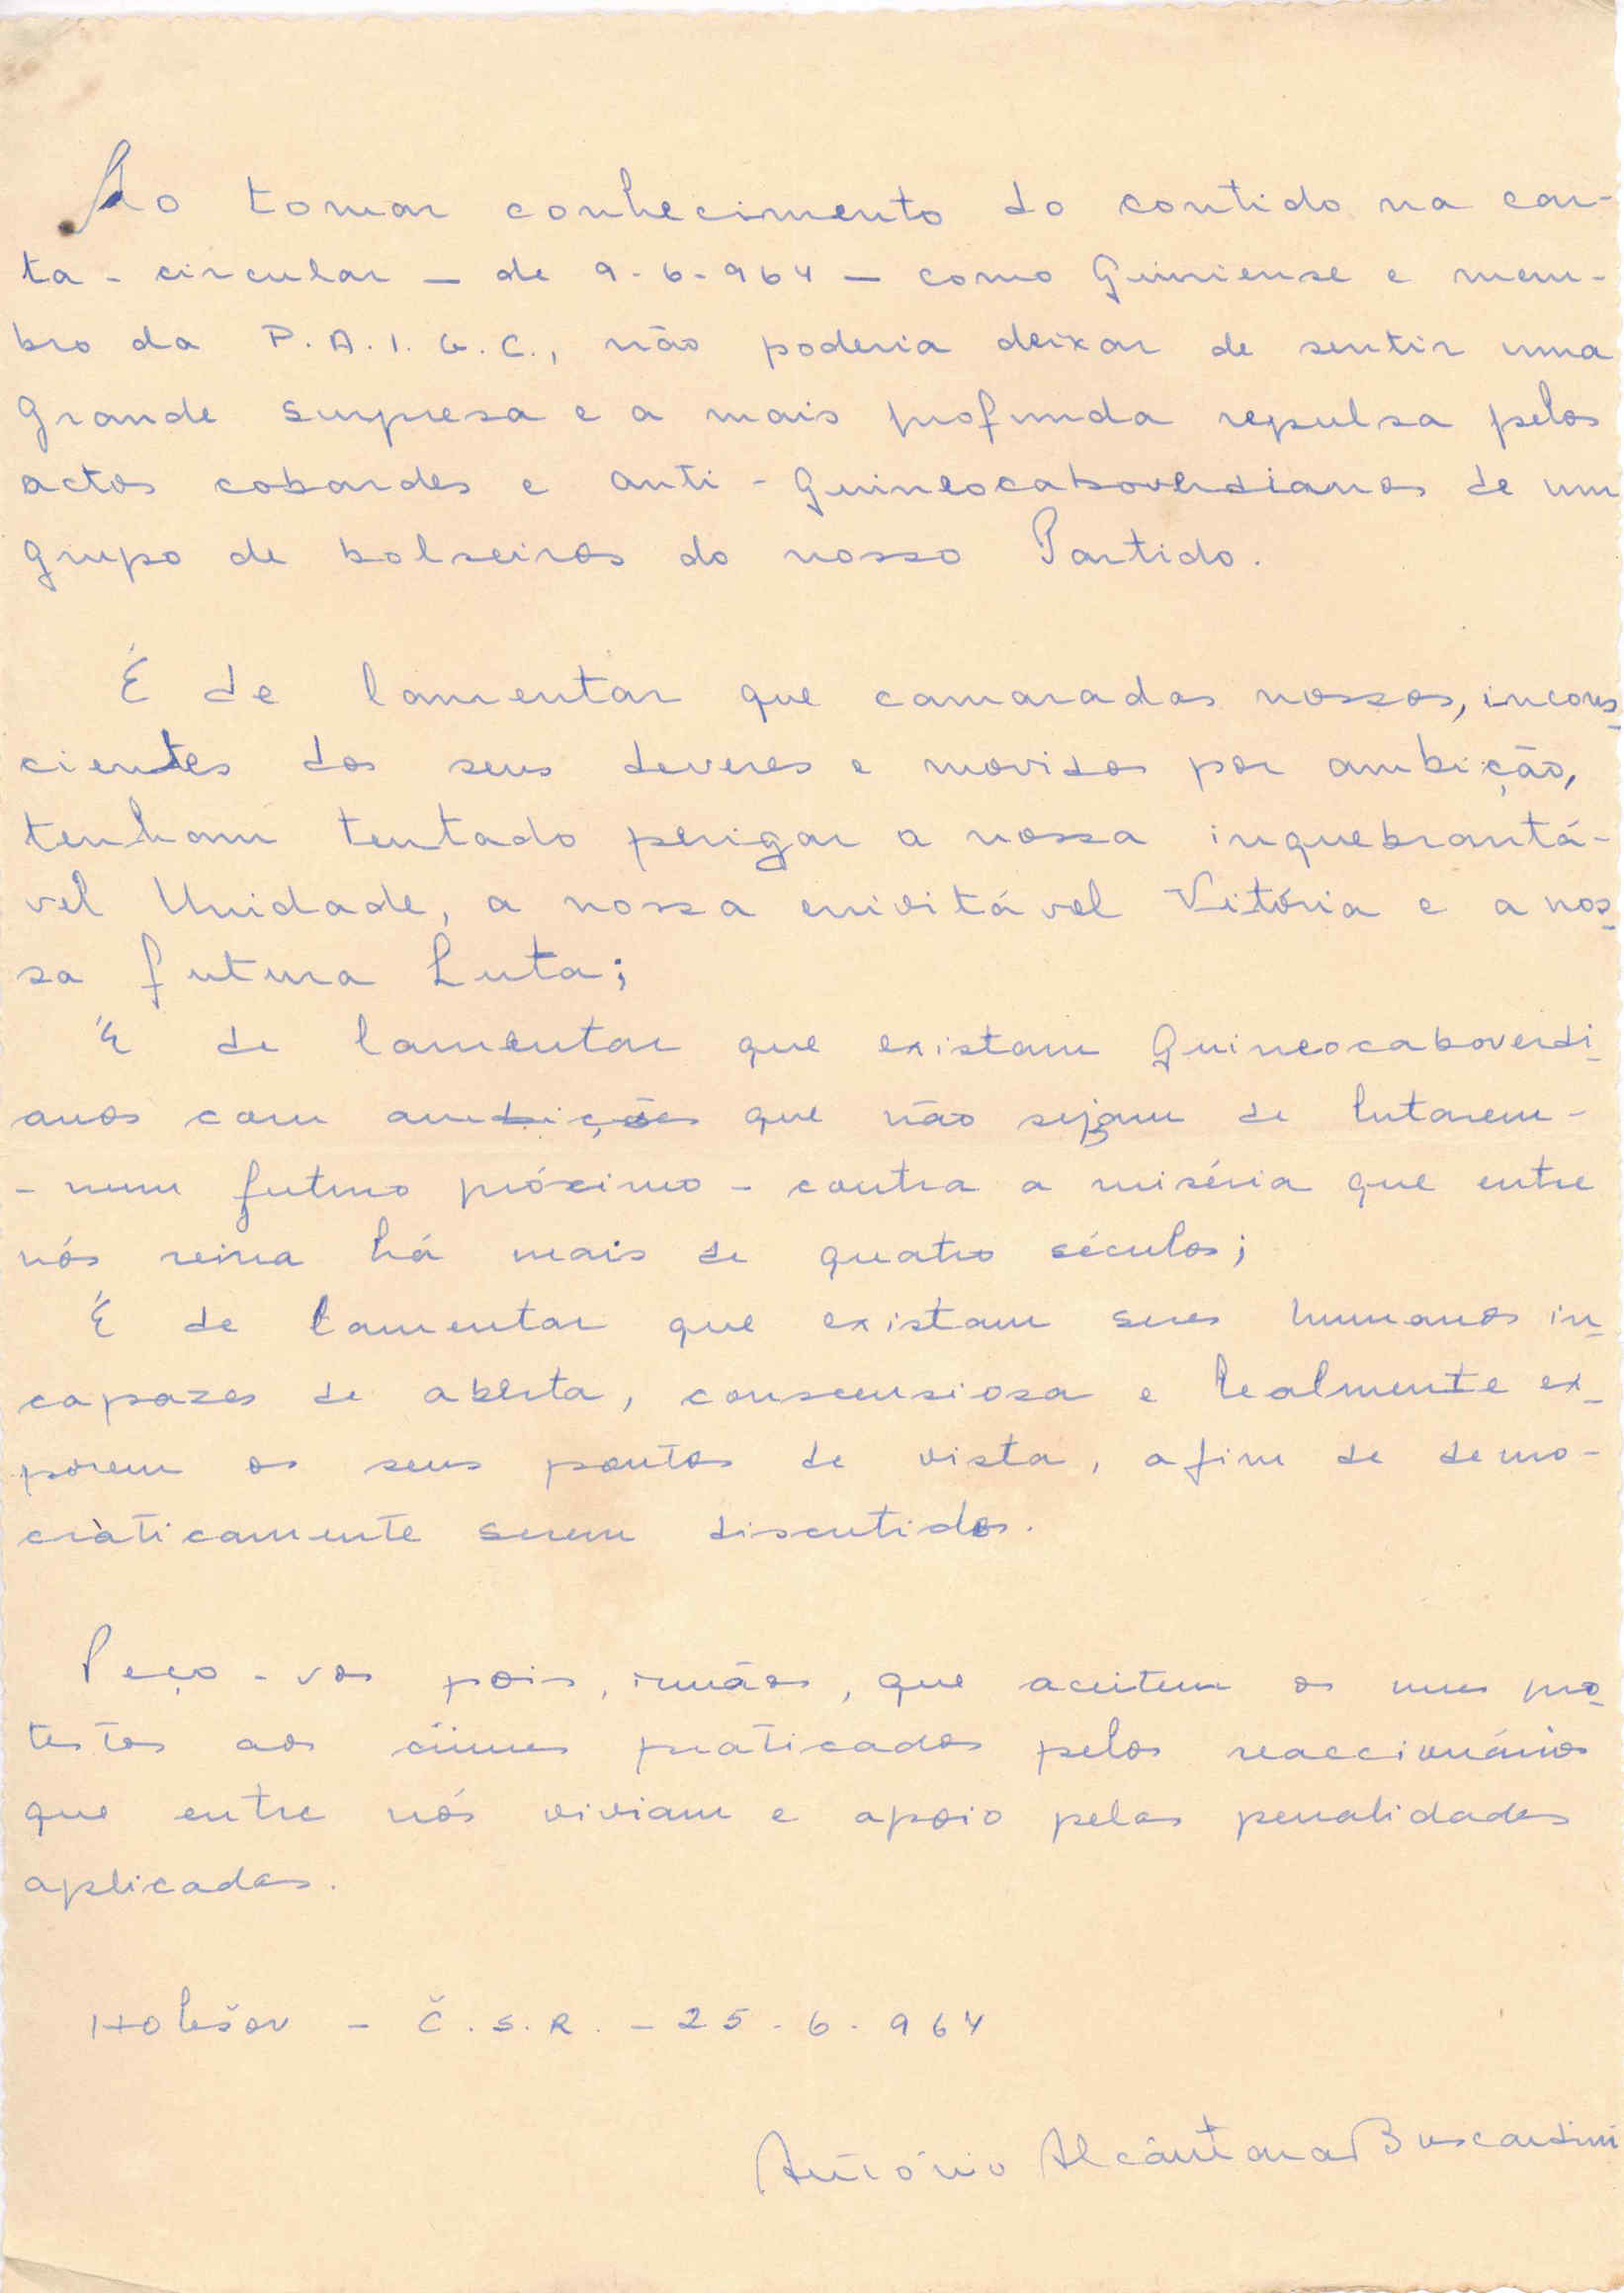 Ao tomar conhecimento do contido na car-
ta - circular - de 9-6-964 - como Guiniense e mem-
bro da P.A.I.G.C., não poderia deixar de sentir uma
grande surpresa e a mais profunda repulsa pelos
actos cobardes e anti-guineocaboverdianos de um
grupo de bolseiros do nosso Partido.
É de lamentar que camaradas nossos, incons-
cientes dos seus deveres e movidos por ambição,
tenham tentado perigar a nossa inquebrantá-
vel Unidade, a nossa enivitável Vitória e a nos-
sa futura Luta;
É de lamentar que existam Guineocaboverdi-
anos com ambições que não sejam de lutarem-
- num futuro próximo - contra a miséria que entre
nós reina há mais de quatro séculos;
É de lamentar que existam seres humanos in-
capazes de aberta, conscensiosa e lealmente ex-
porem os seus pontos de vista, afim de demo-
cràticamente serem discutidos.
Peço-vos pois, irmãos, que aceitem os meus pro-
testos aos crimes praticados pelos reaccionários
que entre nós viviam e apoio pelas penalidades
aplicadas.
Holešov - Č.S.R. - 25-6-964
António Alcântara Buscardini